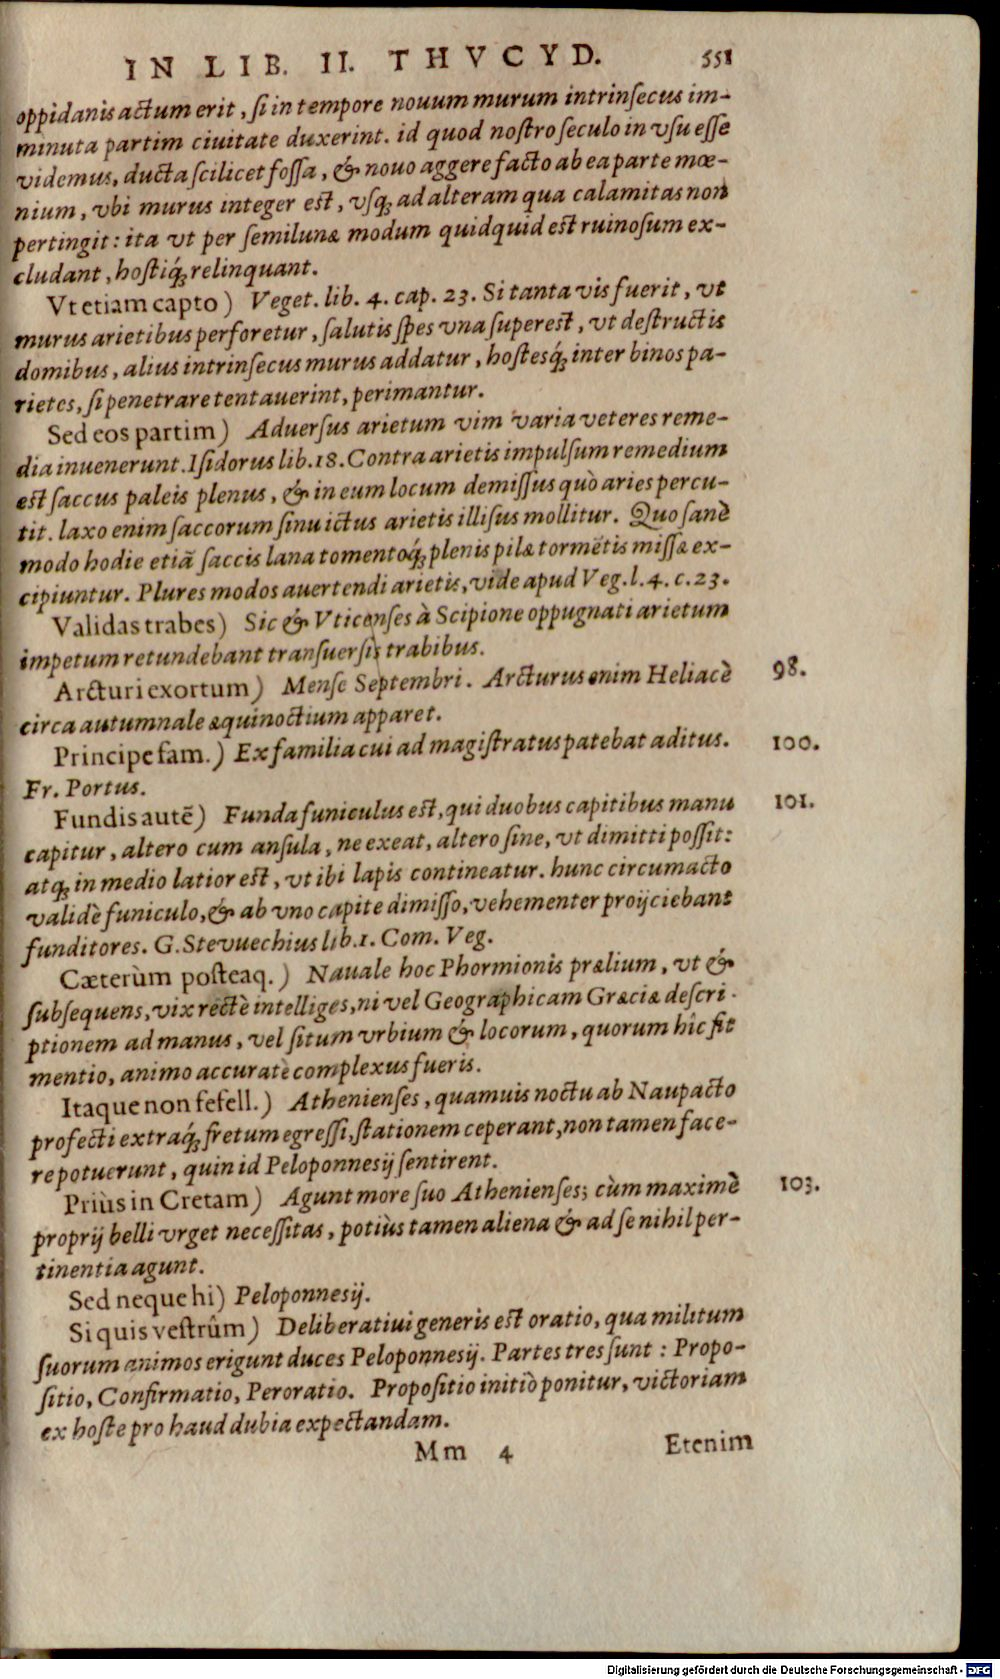 IN LIB. II. THVCYD. 551
oppidanis actum erit, si in tempore nouum murum intrinsecus im-
minuta partim ciuitate duxerint. id quod nostro seculo in vsu esse
videmus, ducta scilicet fossa, & nouo aggere facto ab ea parte mœ-
nium, vbi murus integer est, vsq; ad alteram qua calamitas non
pertingit: ita vt per semilunæ modum quidquid est ruinosum ex-
cludant, hostiq́; relinquant.
Vt etiam capto) Veget. lib. 4. cap. 23. Si tanta vis fuerit, vt
murus arietibus perforetur, salutis spes vna superest, vt destructis
domibus, alius intrinsecus murus addatur, hostesq́; inter binos pa-
rietes, si penetrare tentauerint, perimantur.
Sed eos partim) Aduersus arietum vim varia veteres reme-
dia inuenerunt. Isidorus lib. 18. Contra arietis impulsum remedium
est saccus paleis plenus, & in eum locum demissus quò aries percu-
tit. laxo enim saccorum sinu ictus arietis illisus mollitur. Quo sanè
modo hodie etiã saccis lana tomentoq́; plenis pilæ tormẽtis missæ ex-
cipiuntur. Plures modos auertendi arietis, vide apud Veg. l. 4. c. 23.
Validas trabes) Sic & Vticenses à Scipione oppugnati arietum
impetum retundebant transuersis trabibus.
Arcturi exortum) Mense Septembri. Arcturus enim Heliacè 98.
circa autumnale æquinoctium apparet.
Principe fam.) Ex familia cui ad magistratus patebat aditus. 100.
Fr. Portus.
Fundis autẽ) Funda funiculus est, qui duobus capitibus manu 101.
capitur, altero cum ansula, ne exeat, altero sine, vt dimitti possit:
atq; in medio latior est, vt ibi lapis contineatur. hunc circumacto
validè funiculo, & ab vno capite dimisso, vehementer proijciebant
funditores. G. Stevuechius lib. 1. Com. Veg.
Cæterùm posteaq.) Nauale hoc Phormionis prælium, vt &
subsequens, vix rectè intelliges, ni vel Geographicam Græciæ descri-
ptionem ad manus, vel situm vrbium & locorum, quorum hîc fit
mentio, animo accuratè complexus fueris.
Itaque non fefell.) Athenienses, quamuis noctu ab Naupacto
profecti extraq́; fretum egressi, stationem ceperant, non tamen face-
re potuerunt, quin id Peloponnesij sentirent.
Priùs in Cretam) Agunt more suo Athenienses; cùm maximè 103.
proprij belli vrget necessitas, potiùs tamen aliena & ad se nihil per-
tinentia agunt.
Sed neque hi) Peloponnesij.
Si quis vestrûm) Deliberatiui generis est oratio, qua militum
suorum animos erigunt duces Peloponnesij. Partes tres sunt: Propo-
sitio, Confirmatio, Peroratio. Propositio initiò ponitur, victoriam
ex hoste pro haud dubia expectandam.
Mm 4 Etenim
Digitalisierung gefördert durch die Deutsche Forschungsgemeinschaft - DFG